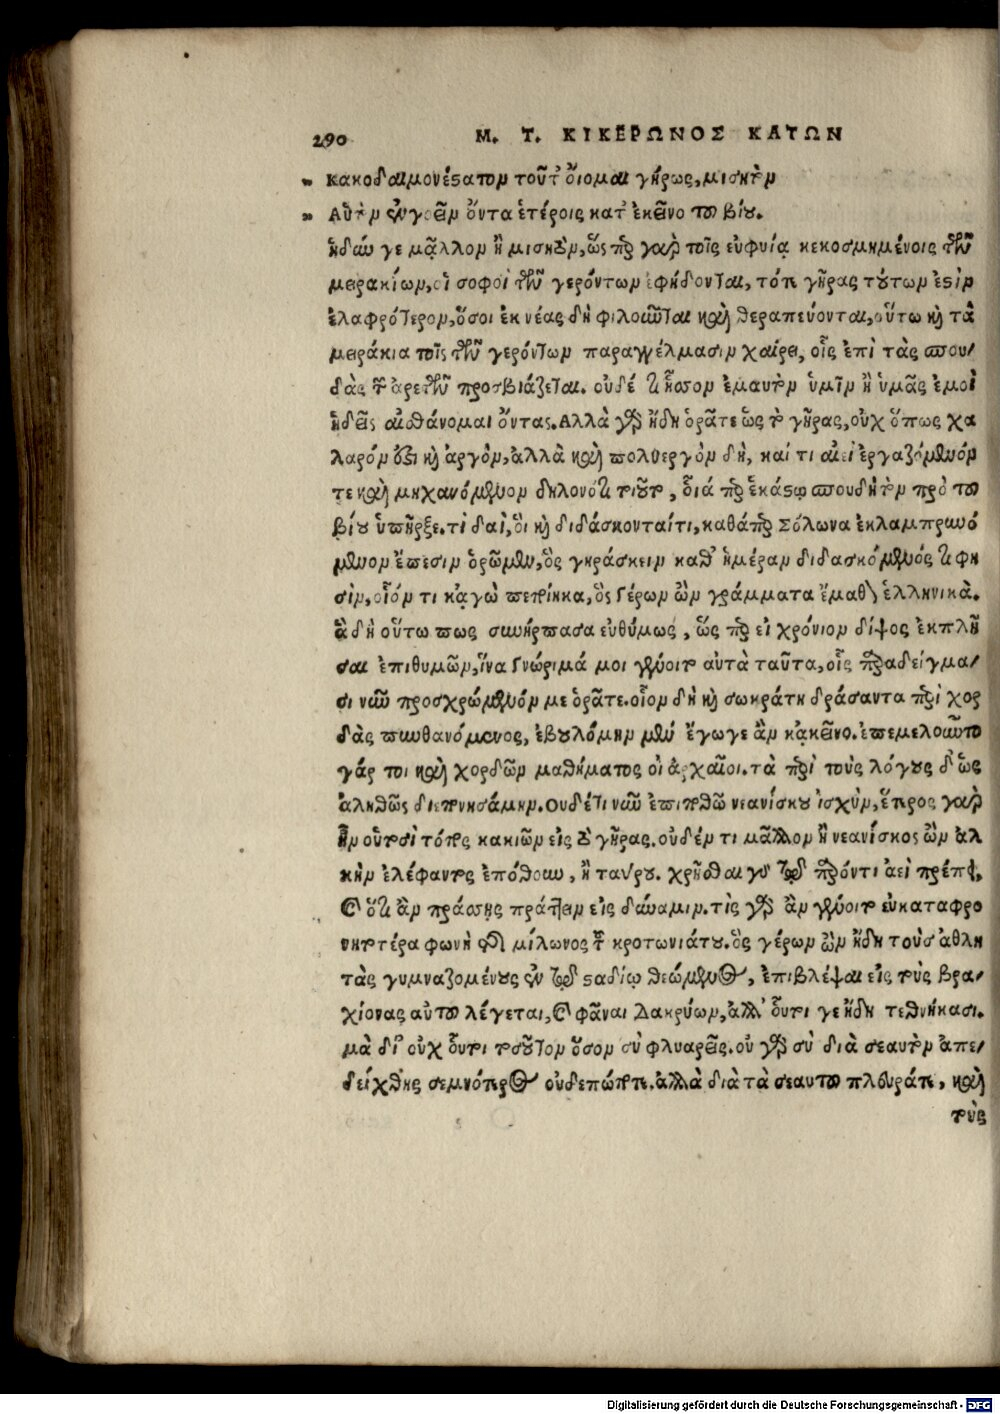 290 Μ. Τ. ΚΙΚΕΡΩΝΟΣ ΚΑΤΩΝ
„ κακοδαιμονέστατον τοῦτ' οἴομαι γήρως, μισητὸν
„ Αὐτὸν συγγοεῖν ὄντα ἑτέροις κατ' ἐκεῖνο τοῦ βίου.
ἡδαύ γε μᾶλλον ἢ μισητόν, ὥσπερ γὰρ τοῖς εὐφυίᾳ κεκοσμημένοις τῶν
μειρακίων, οἱ σοφοὶ τῶν γερόντων ἐφήδονται, τότε γῆρας τούτων ἐστὶν
ἐλαφρότερον, ὅσοι ἐκ νέας δὴ φιλοῦνται καὶ θεραπεύονται, οὕτω καὶ τὰ
μειράκια τοῖς τῶν γερόντων παραγγέλμασιν χαίρει, οἷς ἐπὶ τὰς σπου-
δὰς τῶν ἀρετῶν προσβιάζεται. οὐδέ τι ἧσσον ἐμαυτὸν ὑμῖν ἢ ὑμᾶς ἐμοὶ
ἡδεῖς αἰσθάνομαι ὄντας. Αλλὰ γὰρ ἤδη ὁρᾶτε ὡς τὸ γῆρας, οὐχ ὅπως χα
λαρόν ἐστι καὶ ἀργὸν, ἀλλὰ καὶ πολυεργὸν δὴ, καί τι αἰεὶ ἐργαζόμενόν
τε καὶ μηχανόμενον δηλονότι τοιοῦτον, οἷά περ ἑκάστῳ σπουδὴ τὸν πρὸ τοῦ
βίου ὑπῆρξε. τὶ δαὶ, οἳ καὶ διδάσκονταί τι, καθάπερ Σόλωνα ἐκλαμπρυνό
μενον ἔπεσιν ὁρῶμεν, ὃς γηράσκειν καθ' ἡμέραν διδασκόμενός τι φη
σὶν, οἷόν τι κᾀγὼ πεποίηκα, ὃς Γέρων ὢν γράμματα ἔμαθον ἑλληνικὰ.
ἃ δὴ οὕτω πως συνήρπασα εὐθύμως, ὥσπερ εἰ χρόνιον δίψος ἐκπλῆ
σαι ἐπιθυμῶν, ἵνα Γνώριμά μοι γένοιτο αὐτὰ ταῦτα, οἷς παραδείγμα-
σι νῦν προσχρώμενόν με ὁρᾶτε. οἷον δὴ καὶ σωκράτη δράσαντα περὶ χορ
δὰς πυνθανόμενος, ἐβουλόμην μὲν ἔγωγε ἂν κᾀκεῖνο. ἐπεμελοῦντο
γάρ τοι καὶ χορδῶν μαθήματος οἱ ἀρχαῖοι. τὰ περὶ τοὺς λόγους δ' ὡς
ἀληθῶς διεπονησάμην. Ουδέτι νῦν ἐπιποθῶ νεανίσκου ἰσχὺν, ἕτερος γὰρ
ἦν οὑτοσὶ τόπος κακιῶν εἰς τὸ γῆρας. οὐδέν τι μᾶλλον ἢ νεανίσκος ὢν ἀλ
κὴν ἐλέφαντος ἐπόθουν, ἢ ταύρου. χρῆσθαι γὰρ τῷ παρόντι ἀεὶ πρέπει.
καὶ ὅτι ἂν πράσσῃς πράττειν εἰς δύναμιν. τὶς γὰρ ἂν γένοιτο εὐκαταφρο
νητοτέρα φωνὴ τῆς μίλωνος τοῦ κροτωνιάτου. ὃς γέρων ὢν ἤδη τοὺς ἀθλη
τὰς γυμναζομένους ἐν τῷ σταδίῳ θεώμενος, ἐπιβλέψαι εἰς τοὺς βρα-
χίονας αὑτοῦ λέγεται, καὶ φᾶναι Δακρύων, ἀλλ' οὗτοι γε ἤδη τεθνήκασι.
μὰ δί' οὐχ οὗτοι τοσοῦτον ὅσον σὺ φλυαρεῖς. οὐ γὰρ σὺ διὰ σεαυτὸν ἀπε-
δείχθης σεμνότερος οὐδεπώποτε. ἀλλὰ διὰ τὰ σεαυτοῦ πλευράτε, καὶ
τοὺς
Digitalisierung gefördert durch die Deutsche Forschungsgemeinschaft - DFG